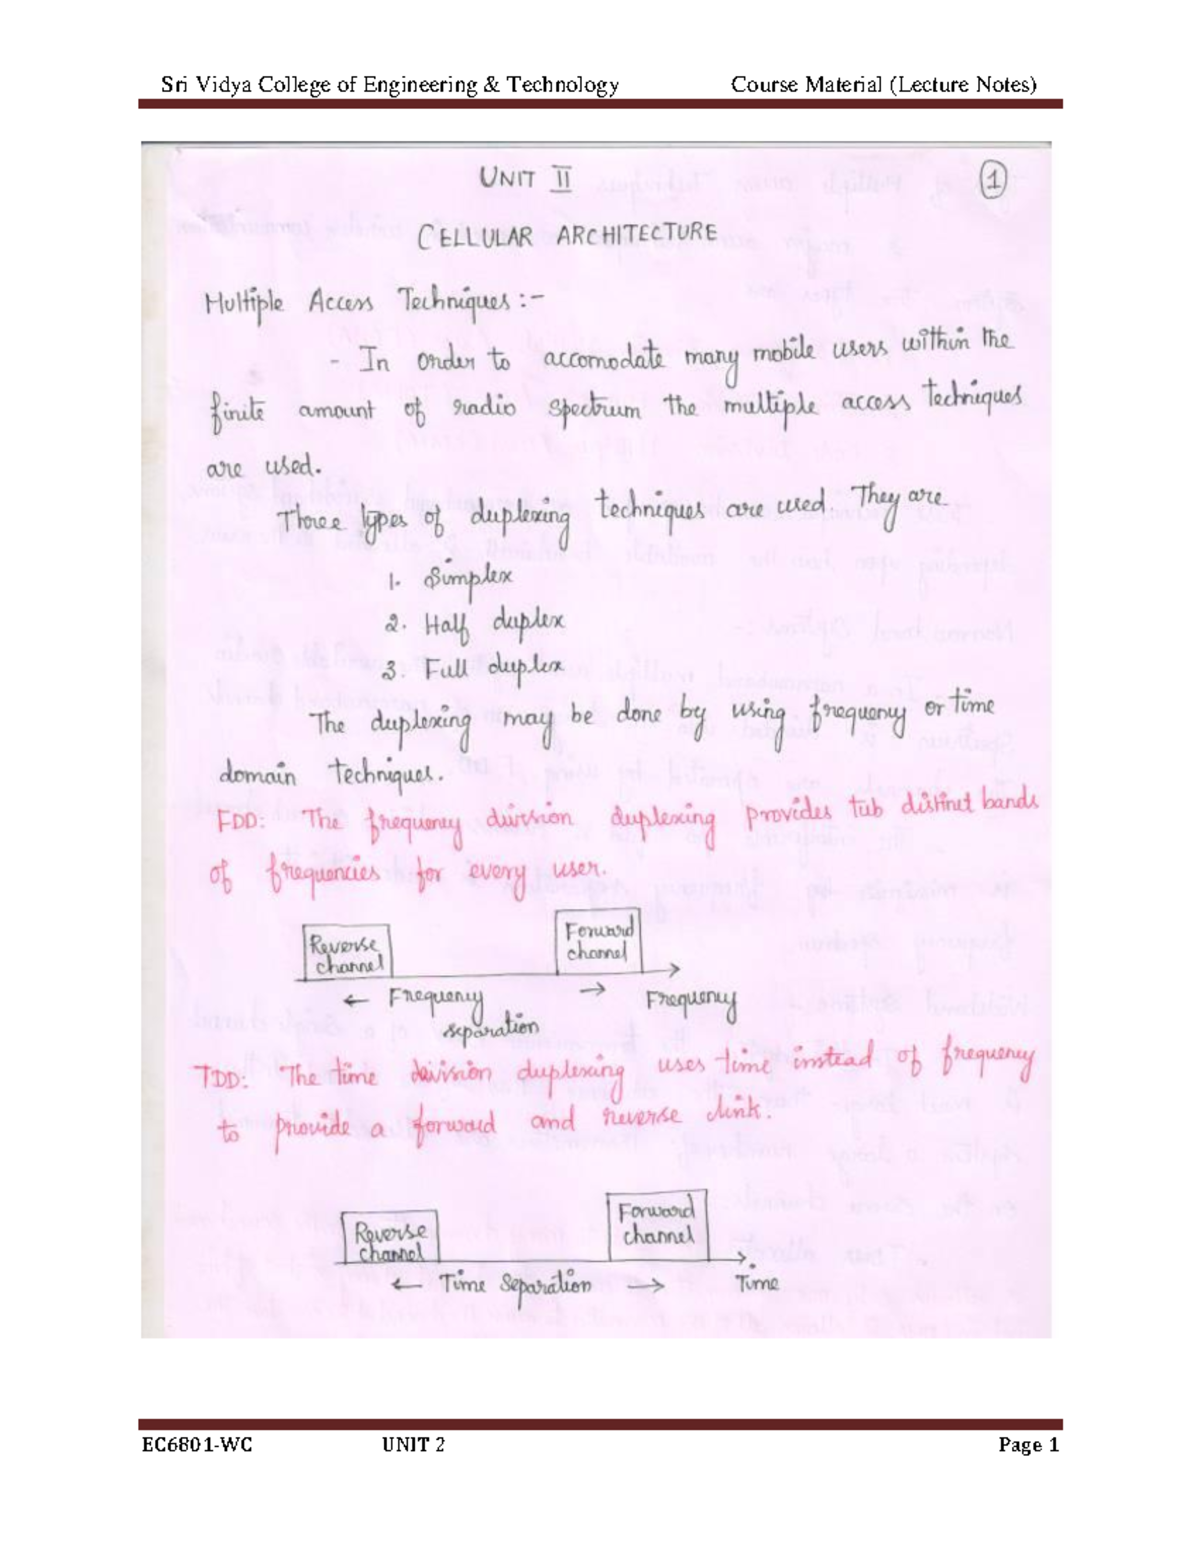 Sri Vidya College of Engineering & Technology Course Material (Lecture Notes)
UNIT II
1
CELLULAR ARCHITECTURE
Multiple Access Techniques :-
- In order to accomodate many mobile users within the
finite amount of radio spectrum the multiple access techniques
are used.
Three types of duplexing techniques are used. They are
1. Simplex
2. Half duplex
3. Full duplex
The duplexing may be done by using frequency or time
domain techniques.
FDD: The frequency division duplexing provides two distinct bands
of frequencies for every user.
Reverse
channel
Forward
channel
← Frequency → Frequency
separation
TDD: The time division duplexing uses time instead of frequency
to provide a forward and reverse link.
Reverse
channel
Forward
channel
← Time Separation → Time
EC6801-WC UNIT 2 Page 1